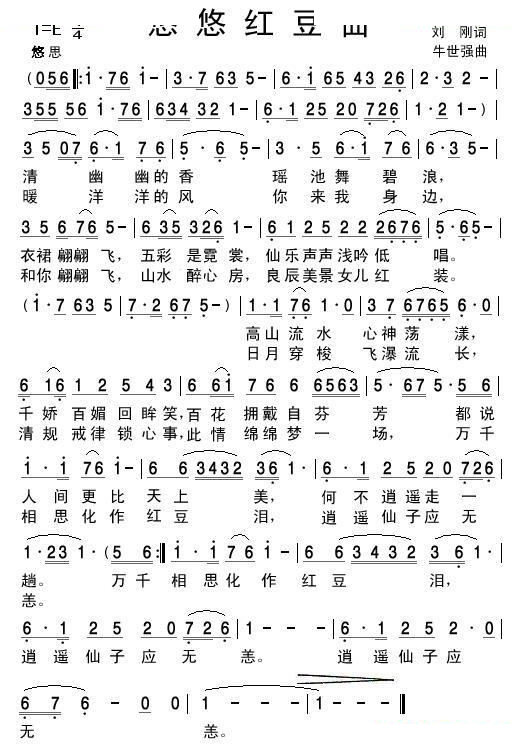 悠悠红豆曲
刘 刚词
悠思
牛世强曲
(056|:1·76 1-|3·7 63 5-|6·1 65 43 26|
355 56 1·76|634 32 1-|6·1 25 20 726|1·2 1-)|
3 5 07 6·1 76|5· 6 5-|3· 5 6·1 76|5 3 5-|
清 幽 幽的香 瑶 池舞 碧 浪,
暖 洋 洋的风 你 来我 身 边,
3 5 6 76 5-|6 35 326 1-|6 1 25 2 2 2676|5·65-|
衣裙 翩翩 飞, 五彩 是霓 裳, 仙乐声声浅吟低 唱。
和你 翩翩 飞, 山水 醉心 房, 良辰美景女儿红 装。
(1·7 63 5|7·2 67 5-)|1·1 76 1·0|37 6765 6·0|
高山 流 水 心神 荡 漾,
日月 穿 梭 飞瀑 流 长,
6 16 1 2 5 43|6 61 7 6 6 6563|5· 67 5·5 6|
千 娇 百媚 回 眸笑,百花 拥戴自芬 芳 都说
清 规 戒律 锁 心事,此情 绵绵梦一 场, 万千
1·1 76 1-|6 6 3432 36 1·|6·1 25 20 726|
人 间 更 比 天 上 美, 何 不 逍遥走 一
相 思 化 作 红 豆 泪, 逍 遥 仙子应 无
1·23 1·(5 6:|1·1 76 1-|6 6 3432 3 6 1·|
趟。 万千 相 思化 作 红 豆 泪,
恙。
6·1 25 20 726|1- 1--|6·1 25 20|
逍遥 仙子 应 无 恙。 逍遥 仙子应
6 7 6·-0 0|1---|1---‖
无 恙。